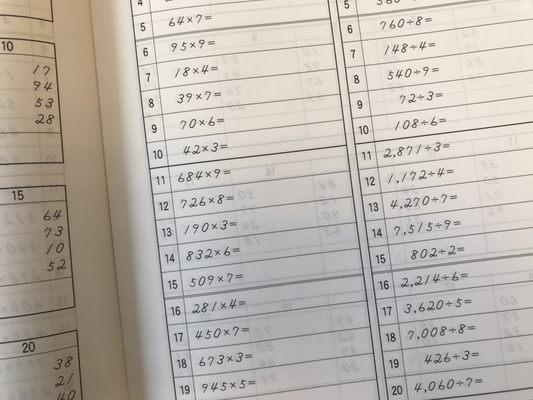 10
17
94
53
28
15
64
73
10
52
20
38
21
40
4
5 64×7=
6 95×9=
7 18×4=
8 39×7=
9 70×6=
10 42×3=
11 684×9=
12 726×8=
13 190×3=
14 832×6=
15 509×7=
16 281×4=
17 450×7=
18 673×3=
19 945×5=
5
6 760÷8=
7 148÷4=
8 540÷9=
9 72÷3=
10 108÷6=
11 2,871÷3=
12 1,172÷4=
13 4,270÷7=
14 7,515÷9=
15 802÷2=
16 2,214÷6=
17 3,620÷5=
18 7,008÷8=
19 426÷3=
20 4,060÷7=